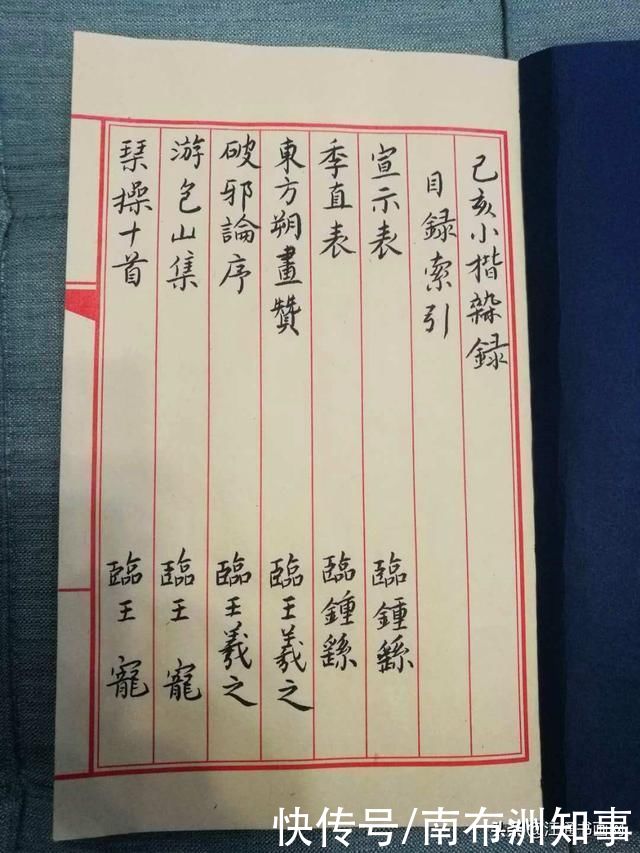 己亥小楷雜録
目録索引
宣示表 臨鍾繇
季直表 臨鍾繇
東方朔畫贊 臨王羲之
破邪論序 臨王羲之
游包山集 臨王寵
琴操十首 臨王寵
快传号/南布洲知事